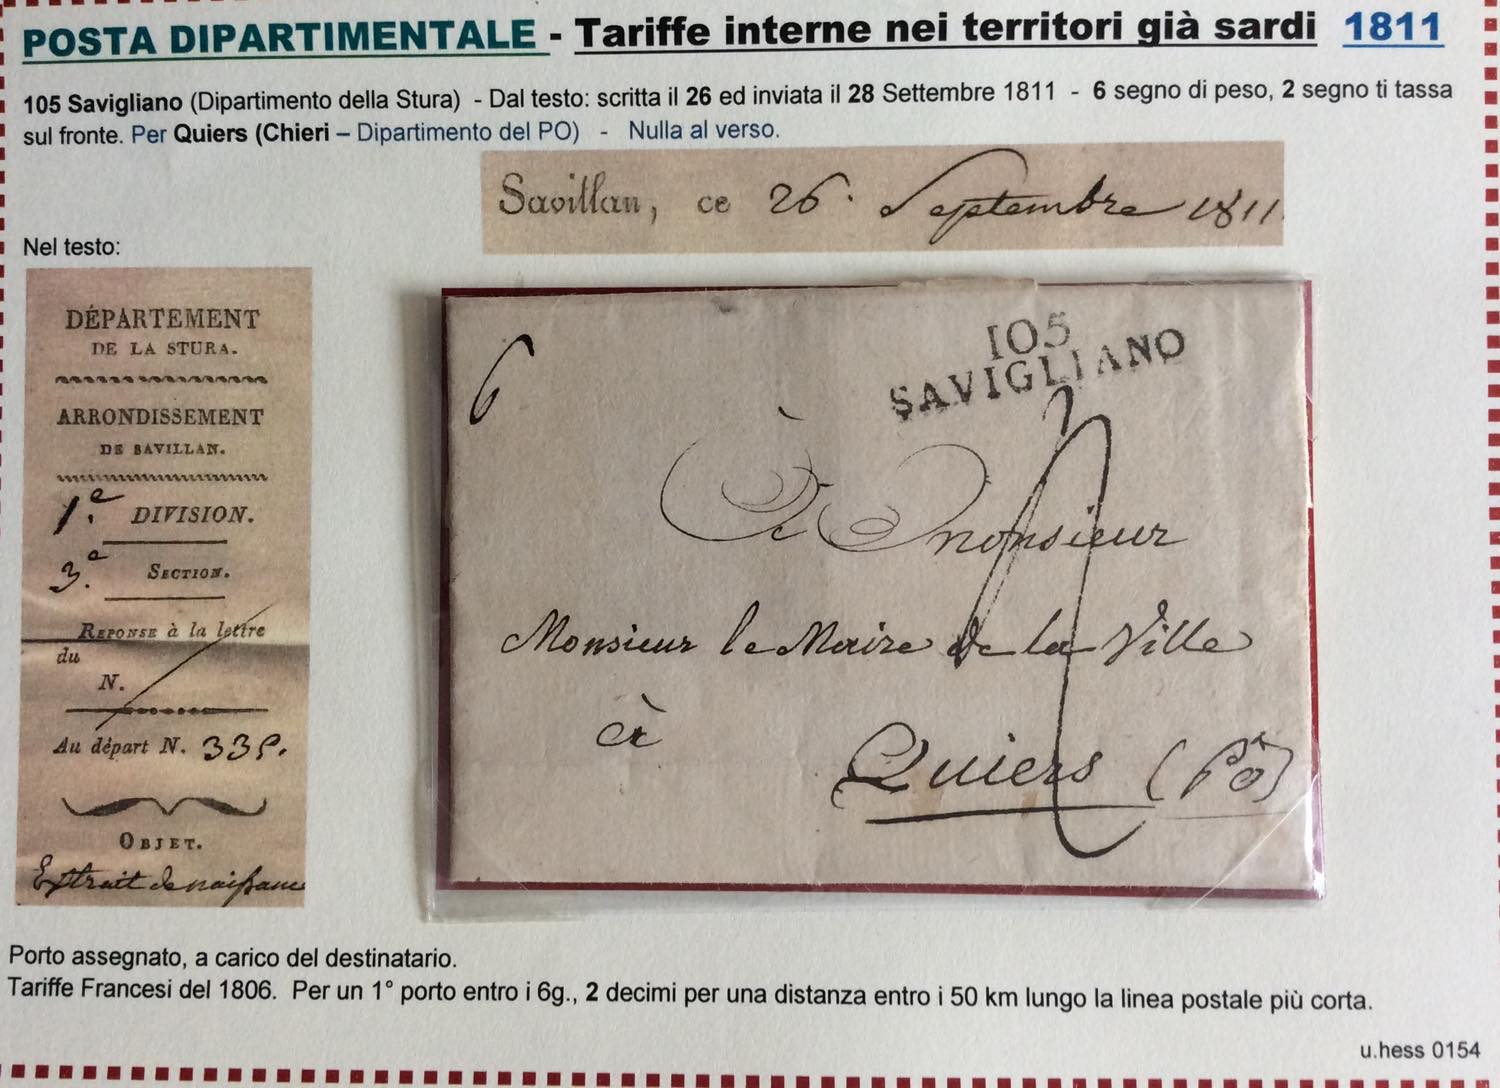 POSTA DIPARTIMENTALE - Tariffe interne nei territori già sardi 1811
105 Savigliano (Dipartimento della Stura) - Dal testo: scritta il 26 ed inviata il 28 Settembre 1811 - 6 segno di peso, 2 segno ti tassa
sul fronte. Per Quiers (Chieri – Dipartimento del PO) - Nulla al verso.
Savillan, ce 26. Septembre 1811.
Nel testo:
DÉPARTEMENT
DE LA STURA.
ARRONDISSEMENT
DE SAVILLAN.
1.e DIVISION.
3.e SECTION.
REPONSE à la lettre
du
N.
Au départ N. 335.
OBJET.
Extrait de naissance
6
105
SAVIGLIANO
2
À Monsieur
Monsieur le Maire de la Ville
à
Quiers (Pô)
Porto assegnato, a carico del destinatario.
Tariffe Francesi del 1806. Per un 1° porto entro i 6g., 2 decimi per una distanza entro i 50 km lungo la linea postale più corta.
u.hess 0154